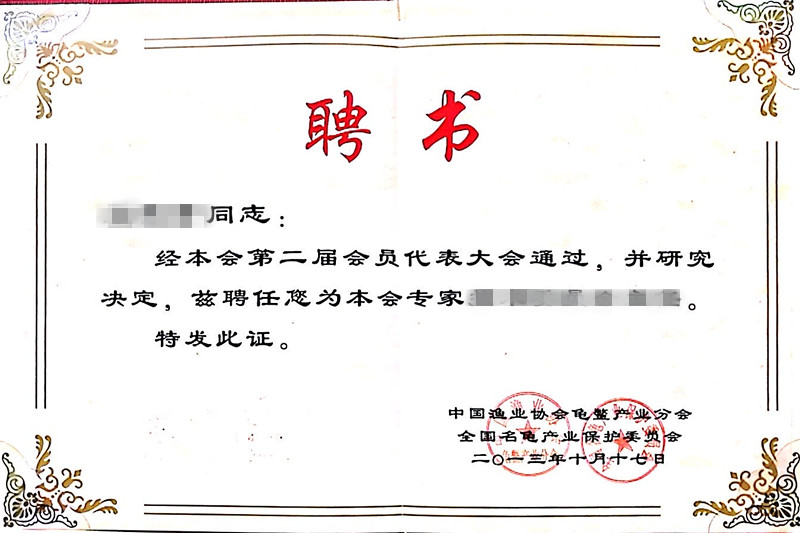 聘书
同志：
经本会第二届会员代表大会通过，并研究
决定，兹聘任您为本会专家。
特发此证。
中国渔业协会龟鳖产业分会
全国名龟产业保护委员会
二〇一三年十月十七日